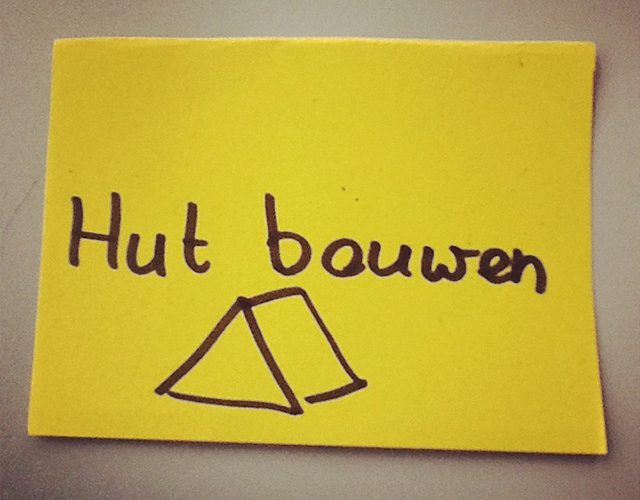 Hut bouwen